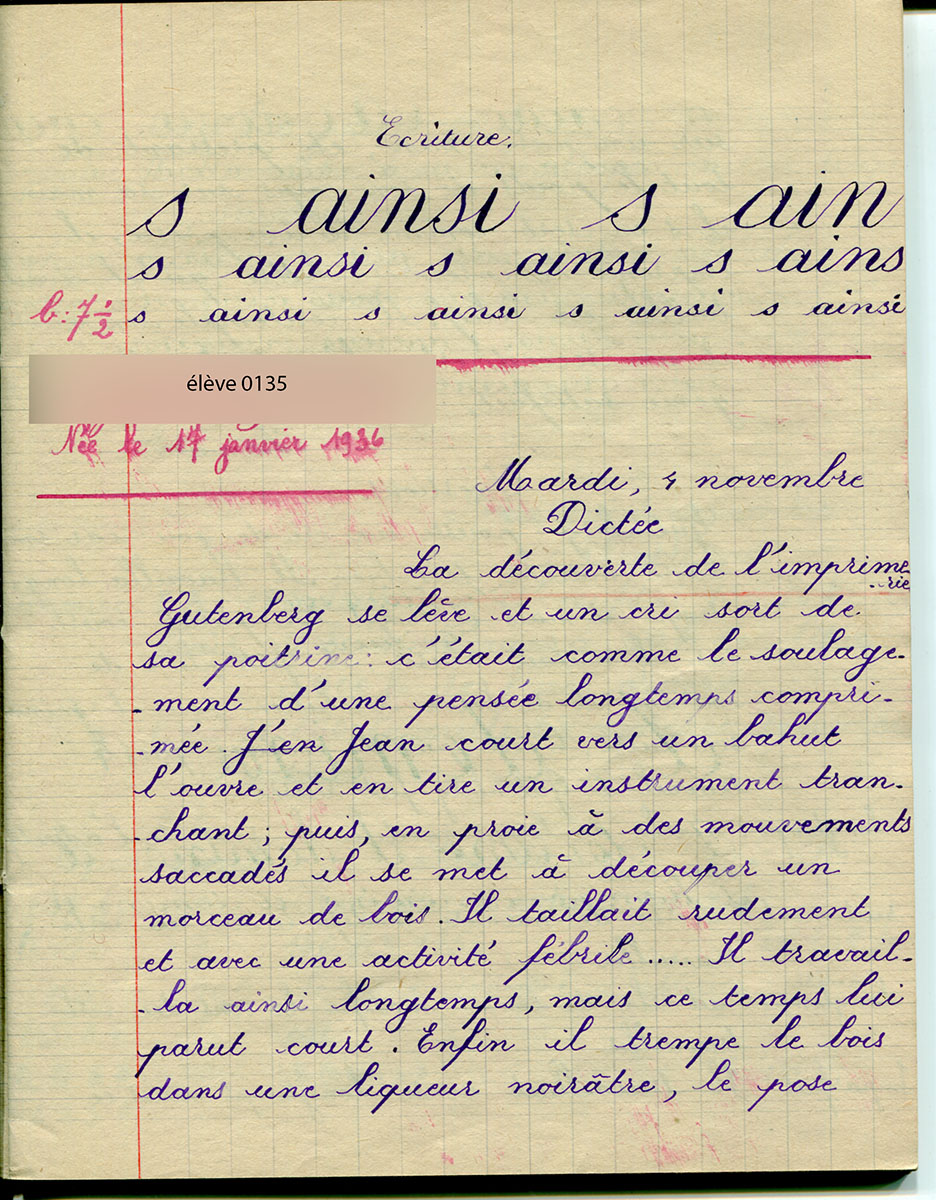 Ecriture.
s ainsi s ain
s ainsi s ainsi s ains
b : 7 1/2 s ainsi s ainsi s ainsi s ainsi
élève 0135
Née le 17 janvier 1936
Mardi, 4 novembre
Dictée
La découverte de l'imprime
-rie
Gutenberg se lêve et un cri sort de
sa poitrine : c'était comme le soulage-
-ment d'une pensée longtemps compri-
-mée. J'en Jean court vers un bahut
l'ouvre et en tire un instrument tran-
-chant ; puis, en proie à des mouvements
saccadés il se met à découper un
morceau de bois. Il taillait rudement
et avec une activité fébrile ..... Il travail-
-la ainsi longtemps, mais ce temps lui
parut court. Enfin il trempe le bois
dans une liqueur noirâtre, le pose